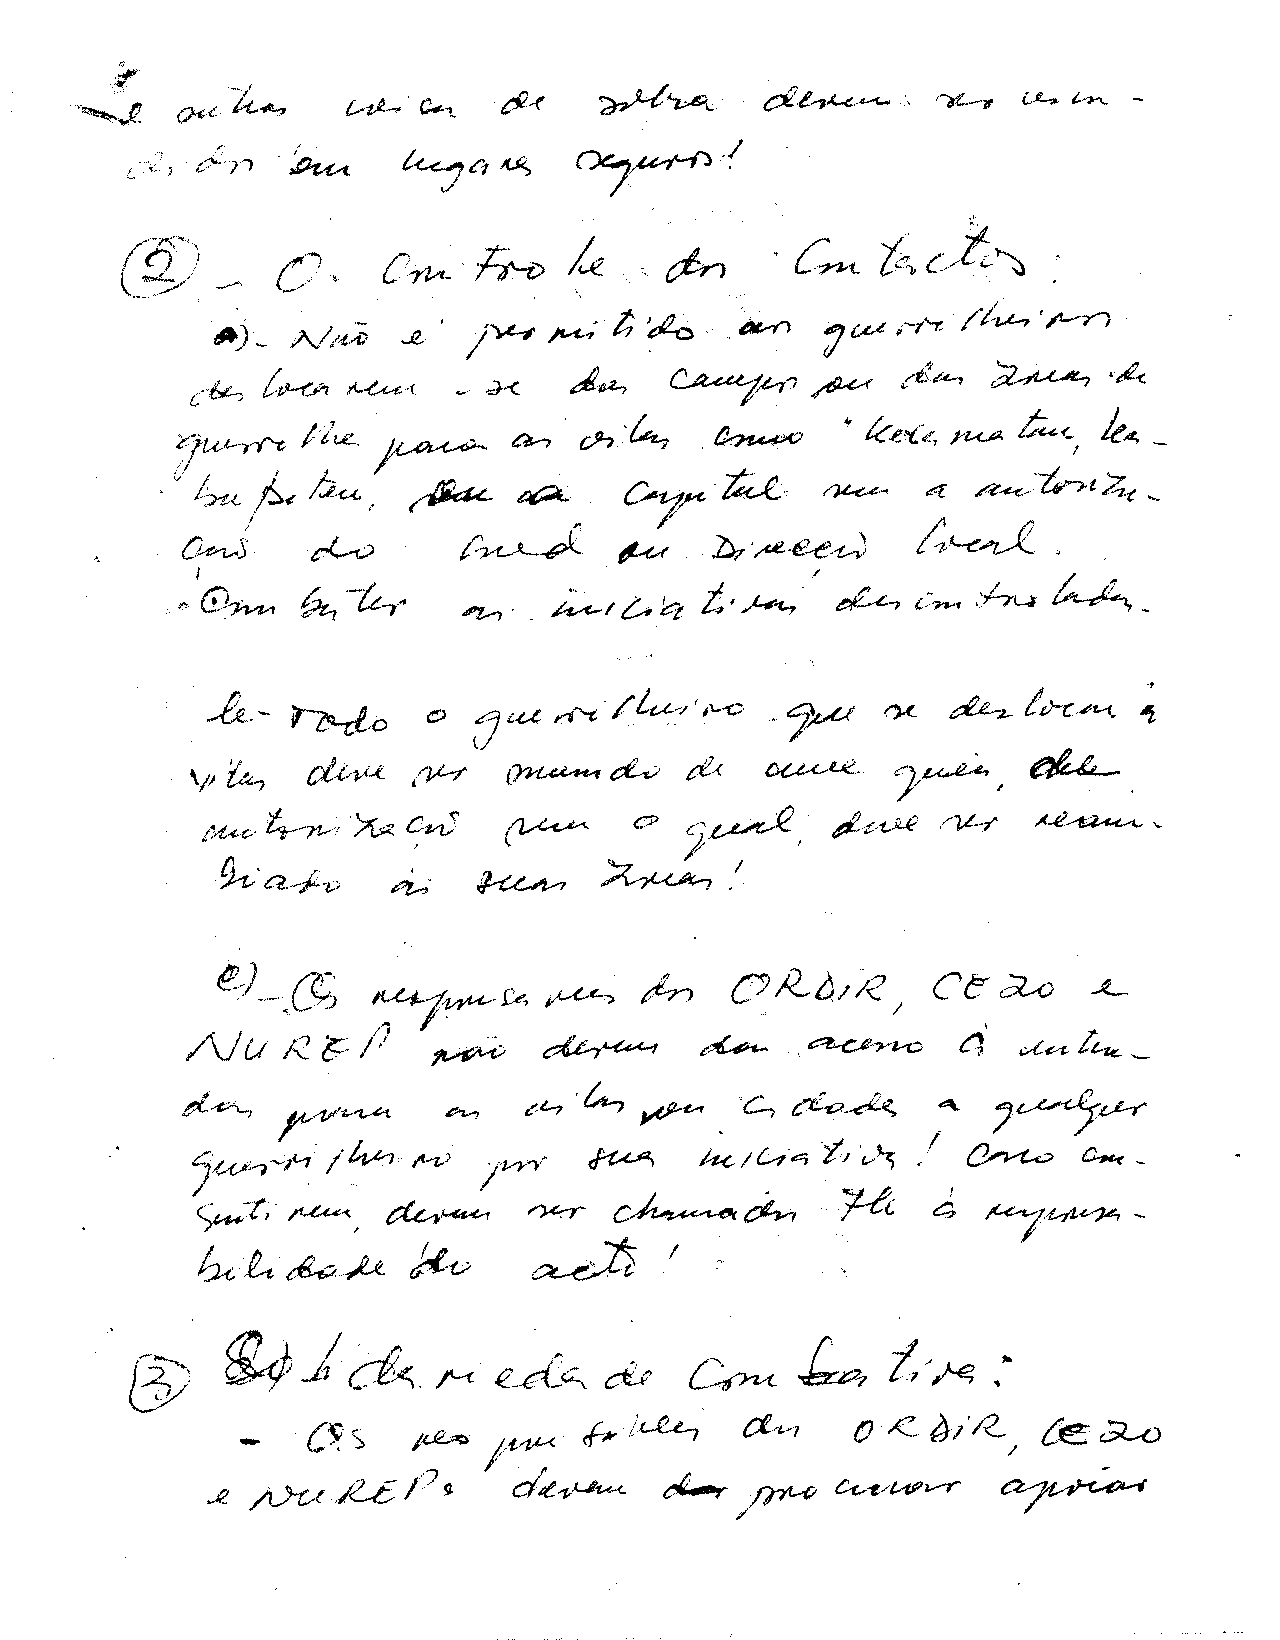 e outras coisas de sobra devem ser escon-
didos em lugares seguros!
② - O. Controle dos Contactos:
a) - Não é permitido aos guerrilheiros
deslocarem-se dos campos ou das áreas de
guerrilha para as vilas como
capital sem a autoriza-
ção do Cmed ou Direcção local.
Combater as iniciativas descontroladas.
b- Todo o guerrilheiro que se deslocar à
vilas deve ser munido de
autorização sem o qual, deve ser ream-
biado às suas áreas!
c) - Os responsaveis dos ORDIR, CEZO e
NUREP não devem dar aceno à entra-
das para as vilas ou cidades a qualquer
guerrilheiro por sua iniciativa! Caso con-
sentirem, devem ser chamados à responsa-
bilidade do acto!
③ Solidariedade Combativa:
- Os responsaveis dos ORDIR, CEZO
e NUREPs devem procurar apoiar